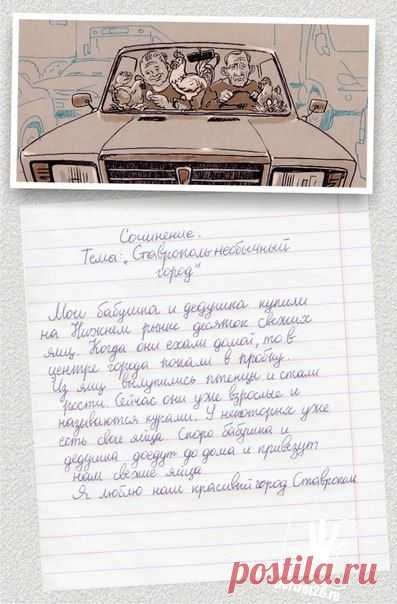 Сочинение.
Тема: „Ставрополь необычный
город"
Мои бабушка и дедушка купили
на Нижнем рынке десяток свежих
яиц. Когда они ехали домой, то в
центре города попали в пробку.
Из яиц вылупились птенцы и стали
рости. Сейчас они уже взрослые и
называются курами. У некоторых уже
есть свои яйца. Скоро бабушка и
дедушка доедут до дома и привезут
нам свежие яйца.
Я люблю наш красивый город Ставрополь
postila.ru